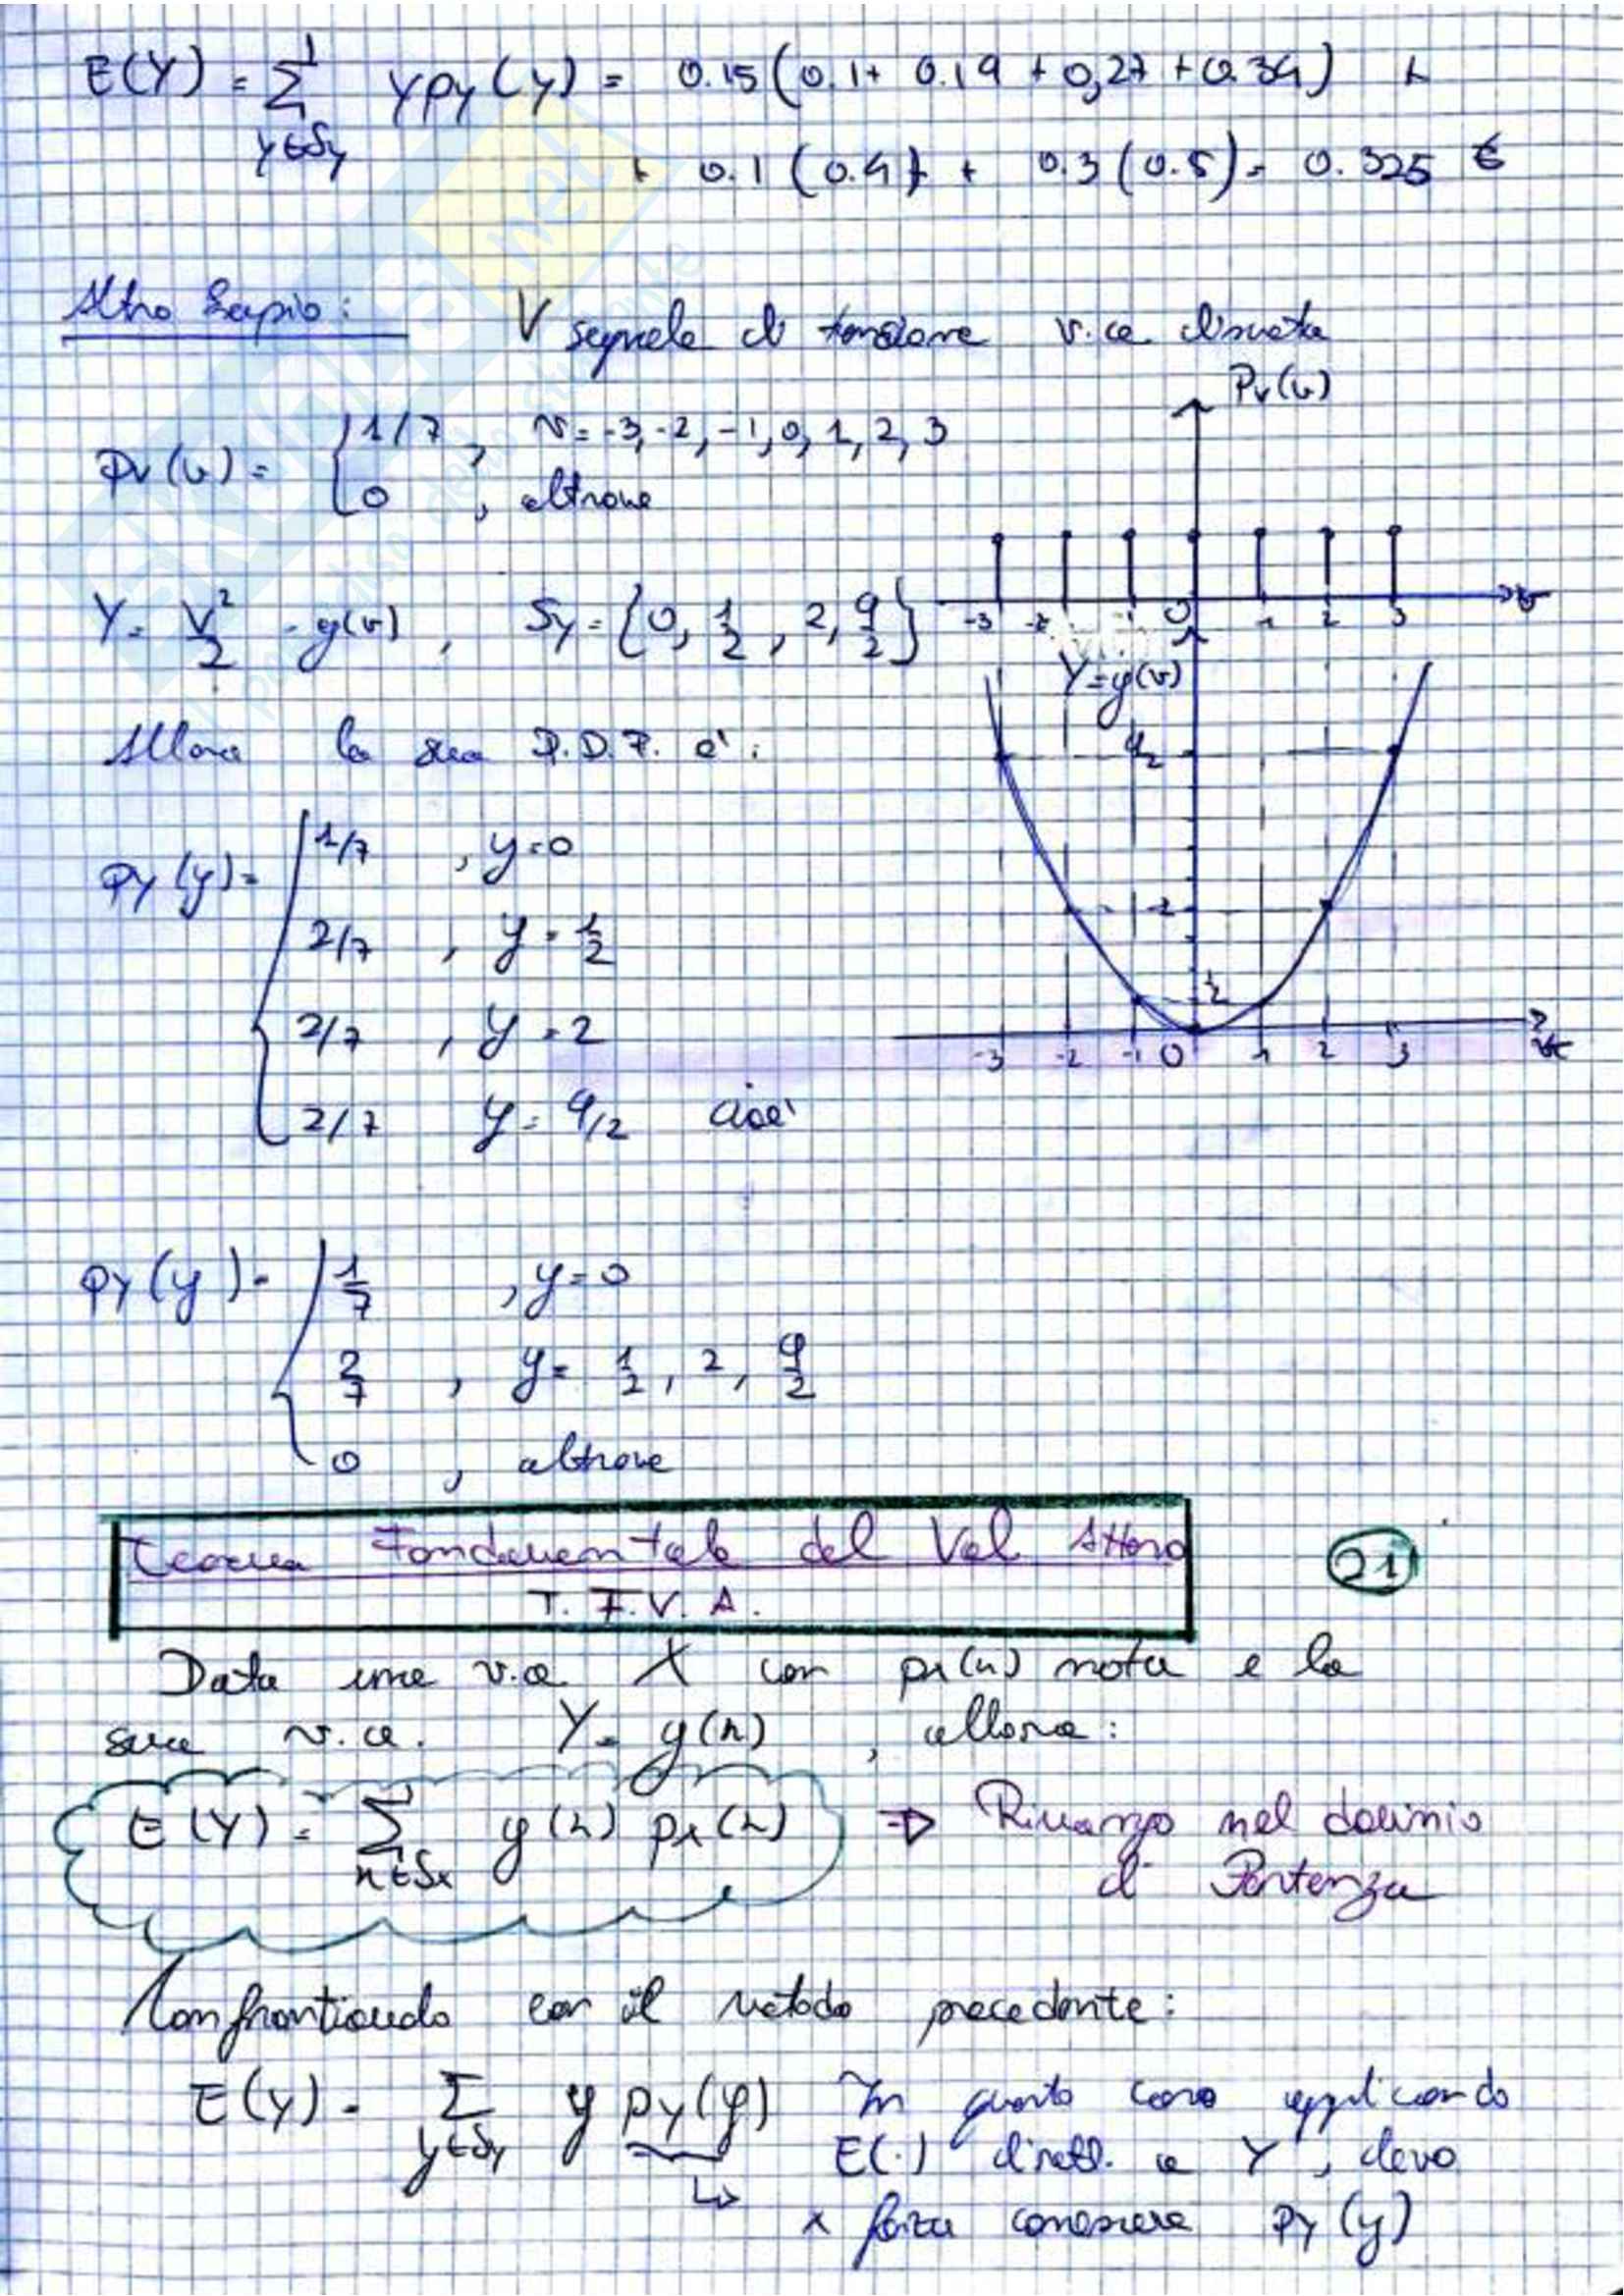 E(Y) = ∑ y∈Sy y pY(y) = 0.15(0.1+ 0.19 + 0,27 + 0.34) +
+ 0.1 (0.4) + 0.3 (0.5) = 0.325 €
Altro Esempio: V segnale di tensione v.a. discreta
pV(v)
pV(v) = { 1/7 , v = -3, -2, -1, 0, 1, 2, 3
0 , altrove
-3 -2 -1 0 1 2 3 v
Y = V²/2 = g(v) , SY = {0, 1/2, 2, 9/2}
Y=g(v)
9/2
2
1/2
-3 -2 -1 0 1 2 3 v
Allora la sua D.D.P. è:
pY(y) = { 1/7 , y=0
2/7 , y = 1/2
2/7 , y = 2
2/7 y = 9/2 cioè
pY(y) = { 1/7 , y=0
2/7 , y = 1/2, 2, 9/2
0 , altrove
Teorema Fondamentale del Val Atteso
T. F. V. A.
21
Data una v.a X con px(x) nota e la
sua v.a. Y = g(x) , allora:
E(Y) = ∑ x∈Sx g(x) px(x) ⇒ Rimango nel dominio
di Partenza
Confrontiando con il metodo precedente:
E(Y) = ∑ y∈SY y pY(y) In questo caso applicando
↳ E(.) dirett. a Y, devo
x forza conoscere pY(y)